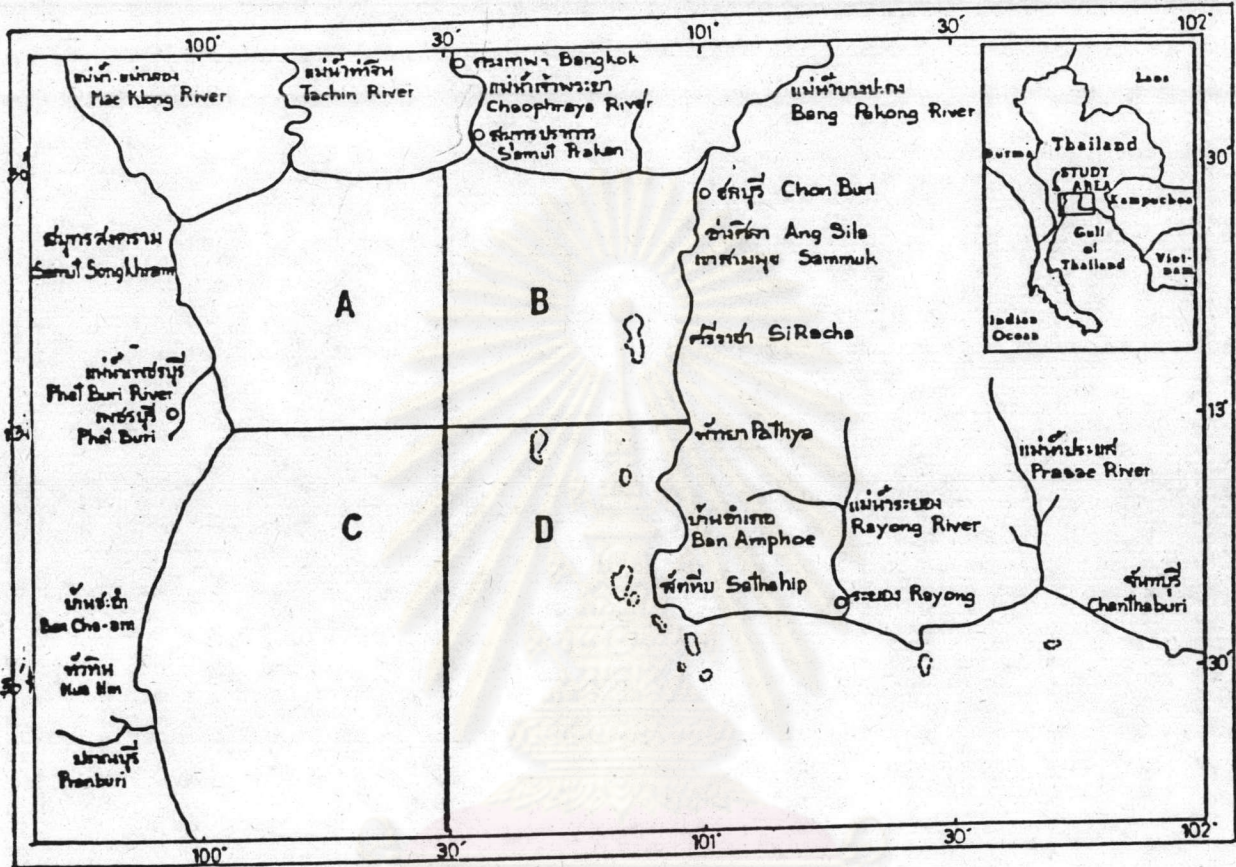 100°
30'
101°
30'
102°
แม่น้ำแม่กลอง
Mae Klong River
แม่น้ำท่าจีน
Tachin River
กรุงเทพฯ Bangkok
แม่น้ำเจ้าพระยา
Chaophraya River
สมุทรปราการ
Samut Prakan
แม่น้ำบางปะกง
Bang Pakong River
Laos
Burma
Thailand
STUDY
AREA
Kampuchea
Gulf
of
Thailand
Viet-
nam
Indian
Ocean
30'
30'
ชลบุรี Chon Buri
อ่างศิลา Ang Sila
เขาสามมุข Sammuk
สมุทรสงคราม
Samut Songkhram
A
B
ศรีราชา SiRacha
แม่น้ำเพชรบุรี
Phet Buri River
เพชรบุรี
Phet Buri
13°
13°
พัทยา Pathya
แม่น้ำประแส
Prasae River
C
D
บ้านอำเภอ
Ban Amphoe
แม่น้ำระยอง
Rayong River
สัตหีบ Sathahip
ระยอง Rayong
จันทบุรี
Chanthaburi
บ้านชะอำ
Ban Cha-am
หัวหิน
Hua Hin
30'
30'
ปราณบุรี
Pranburi
100°
30'
101°
30'
102°